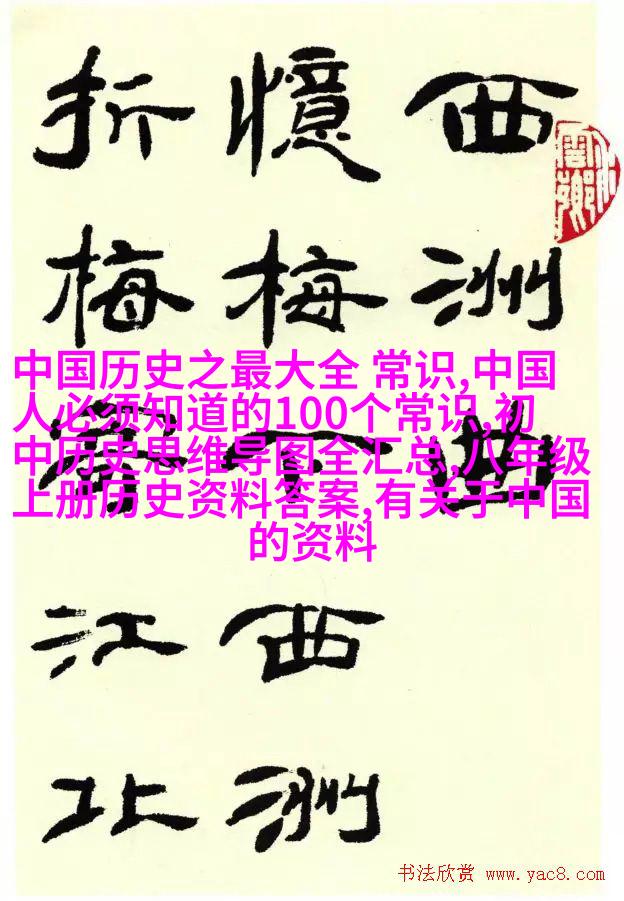 西洲曲
憶梅下西洲
折梅寄江北
中国历史之最大全 常识,中国
人必须知道的100个常识,初
中历史思维导图全汇总,八年级
上册历史资料答案,有关于中国
的资料
书法欣赏 www.yac8.com